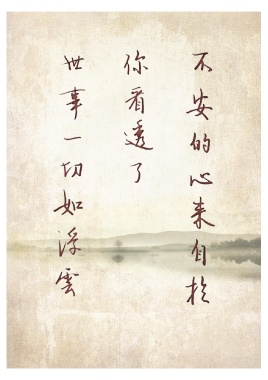 不安的心来自於
你看透了
世事一切如浮雲